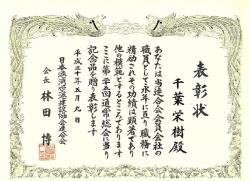 表彰状
千葉栄樹殿
あなたは当連合会会員会社の
職員として永年に亘り職務に
精励されその功績は顕著であり
他の模範とするところであります
ここに第二十五回通常総会に当り
記念品を贈り表彰します
平成三十年五月九日
会長 林田博